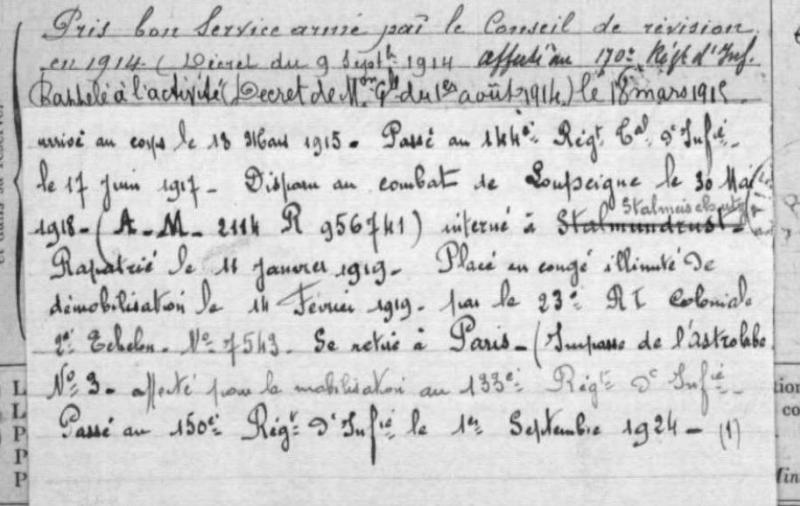 Pris bon Service armé par le Conseil de révision
en 1914 (Décret du 9 Septbre 1914 affecté au 170e Régt d'Inf.
Rappelé à l'activité (Décret de Mon Gle du 1er août 1914) le 18 mars 1915
arrivé au corps le 18 Mars 1915 - Passé au 144e Régt Cal d'Infie -
le 17 Juin 1917 - Disparu au combat de Loupeigne le 30 Mai
1918 - (A-M- 2114 R 956741) interné à Stalmundrust -
Rapatrié le 11 janvier 1919 - Placé en congé illimité de
démobilisation le 14 Février 1919 - par le 23e RI Coloniale
2e Echelon - No 7543. Se retire à Paris - (Impasse de l'Astrolabe
No 3 - affecté pour la mobilisation au 133e Régt d'Infie -
Passé au 150e Régt d'Infie le 1er Septembre 1924 - (1)
L
L
P
P
P